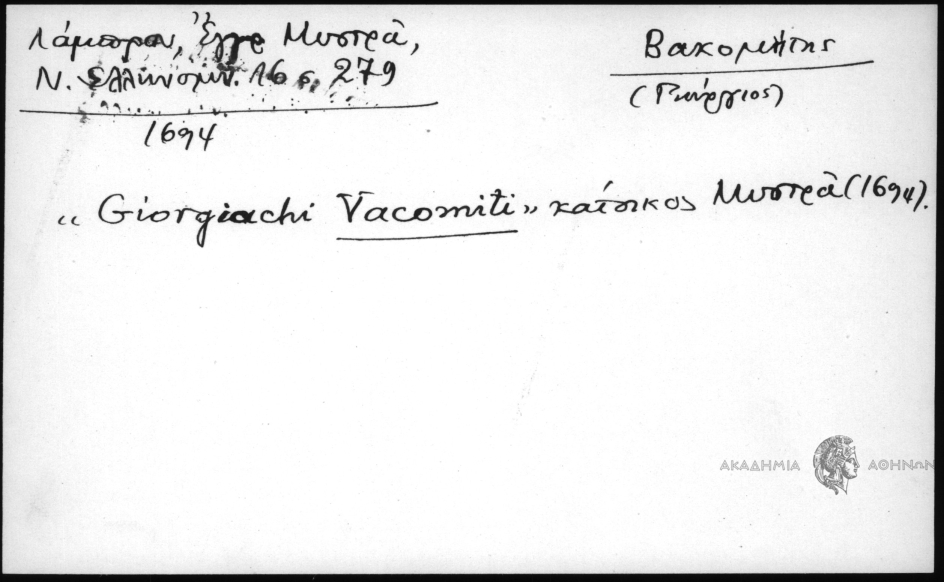 Λάμπρου, Ἔγγρ Μυστρᾶ,
Ν. Ἑλληνομν. 16 σ. 279
1694
Βακομίτης
(Γεώργιος)
"Giorgiachi Vacomiti" κάτοικος Μυστρᾶ (1694).
ΑΚΑΔΗΜΙΑ ΑΘΗΝΩΝ